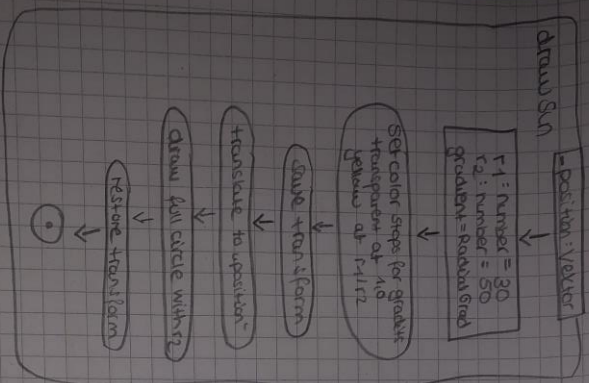 drawSun
_position: Vektor
r1: number = 30
r2: number = 50
gradient = RadialGrad
set color stops for gradient
transparent at 1,0
yellow at r1/r2
save transform
translate to "position"
draw full circle with r2
restore transform